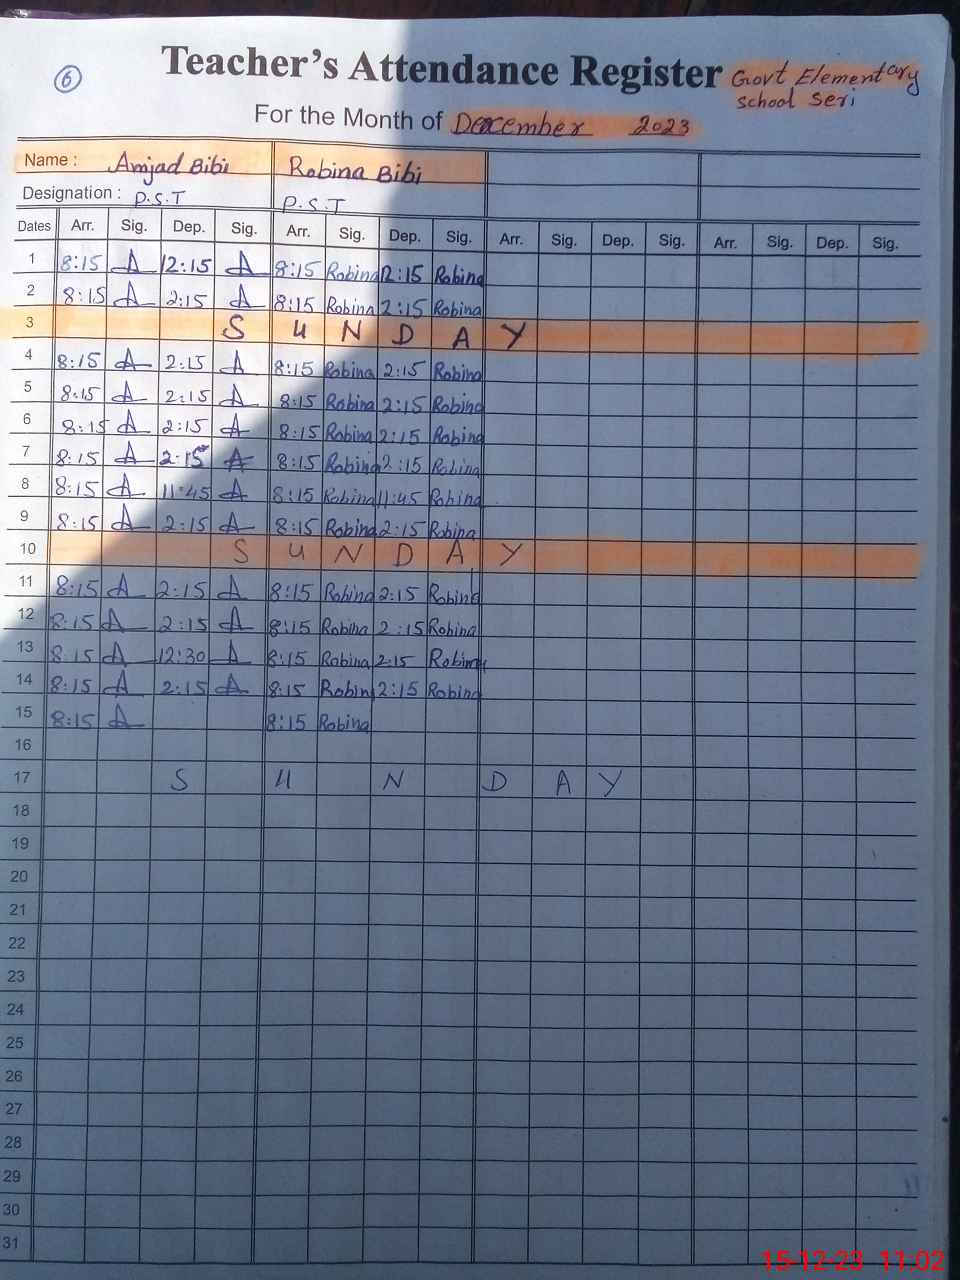 6
Teacher's Attendance Register Govt Elementary
school Seri
For the Month of December 2023
Name : Amjad Bibi Robina Bibi
Designation : P.S.T P.S.T
Dates Arr. Sig. Dep. Sig. Arr. Sig. Dep. Sig. Arr. Sig. Dep. Sig. Arr. Sig. Dep. Sig.
1 8:15 A 12:15 A 8:15 Robina 12:15 Robina
2 8:15 A 2:15 A 8:15 Robina 2:15 Robina
3 S U N D A Y
4 8:15 A 2:15 A 8:15 Robina 2:15 Robina
5 8:15 A 2:15 A 8:15 Robina 2:15 Robina
6 8:15 A 2:15 A 8:15 Robina 2:15 Robina
7 8:15 A 2:15 A 8:15 Robina 2:15 Robina
8 8:15 A 11:45 A 8:15 Robina 11:45 Robina
9 8:15 A 2:15 A 8:15 Robina 2:15 Robina
10 S U N D A Y
11 8:15 A 2:15 A 8:15 Robina 2:15 Robina
12 8:15 A 2:15 A 8:15 Robina 2:15 Robina
13 8:15 A 12:30 A 8:15 Robina 2:15 Robina
14 8:15 A 2:15 A 8:15 Robin 2:15 Robina
15 8:15 A 8:15 Robina
16
17 S U N D A Y
18
19
20
21
22
23
24
25
26
27
28
29
30
31
15-12-23 11:02